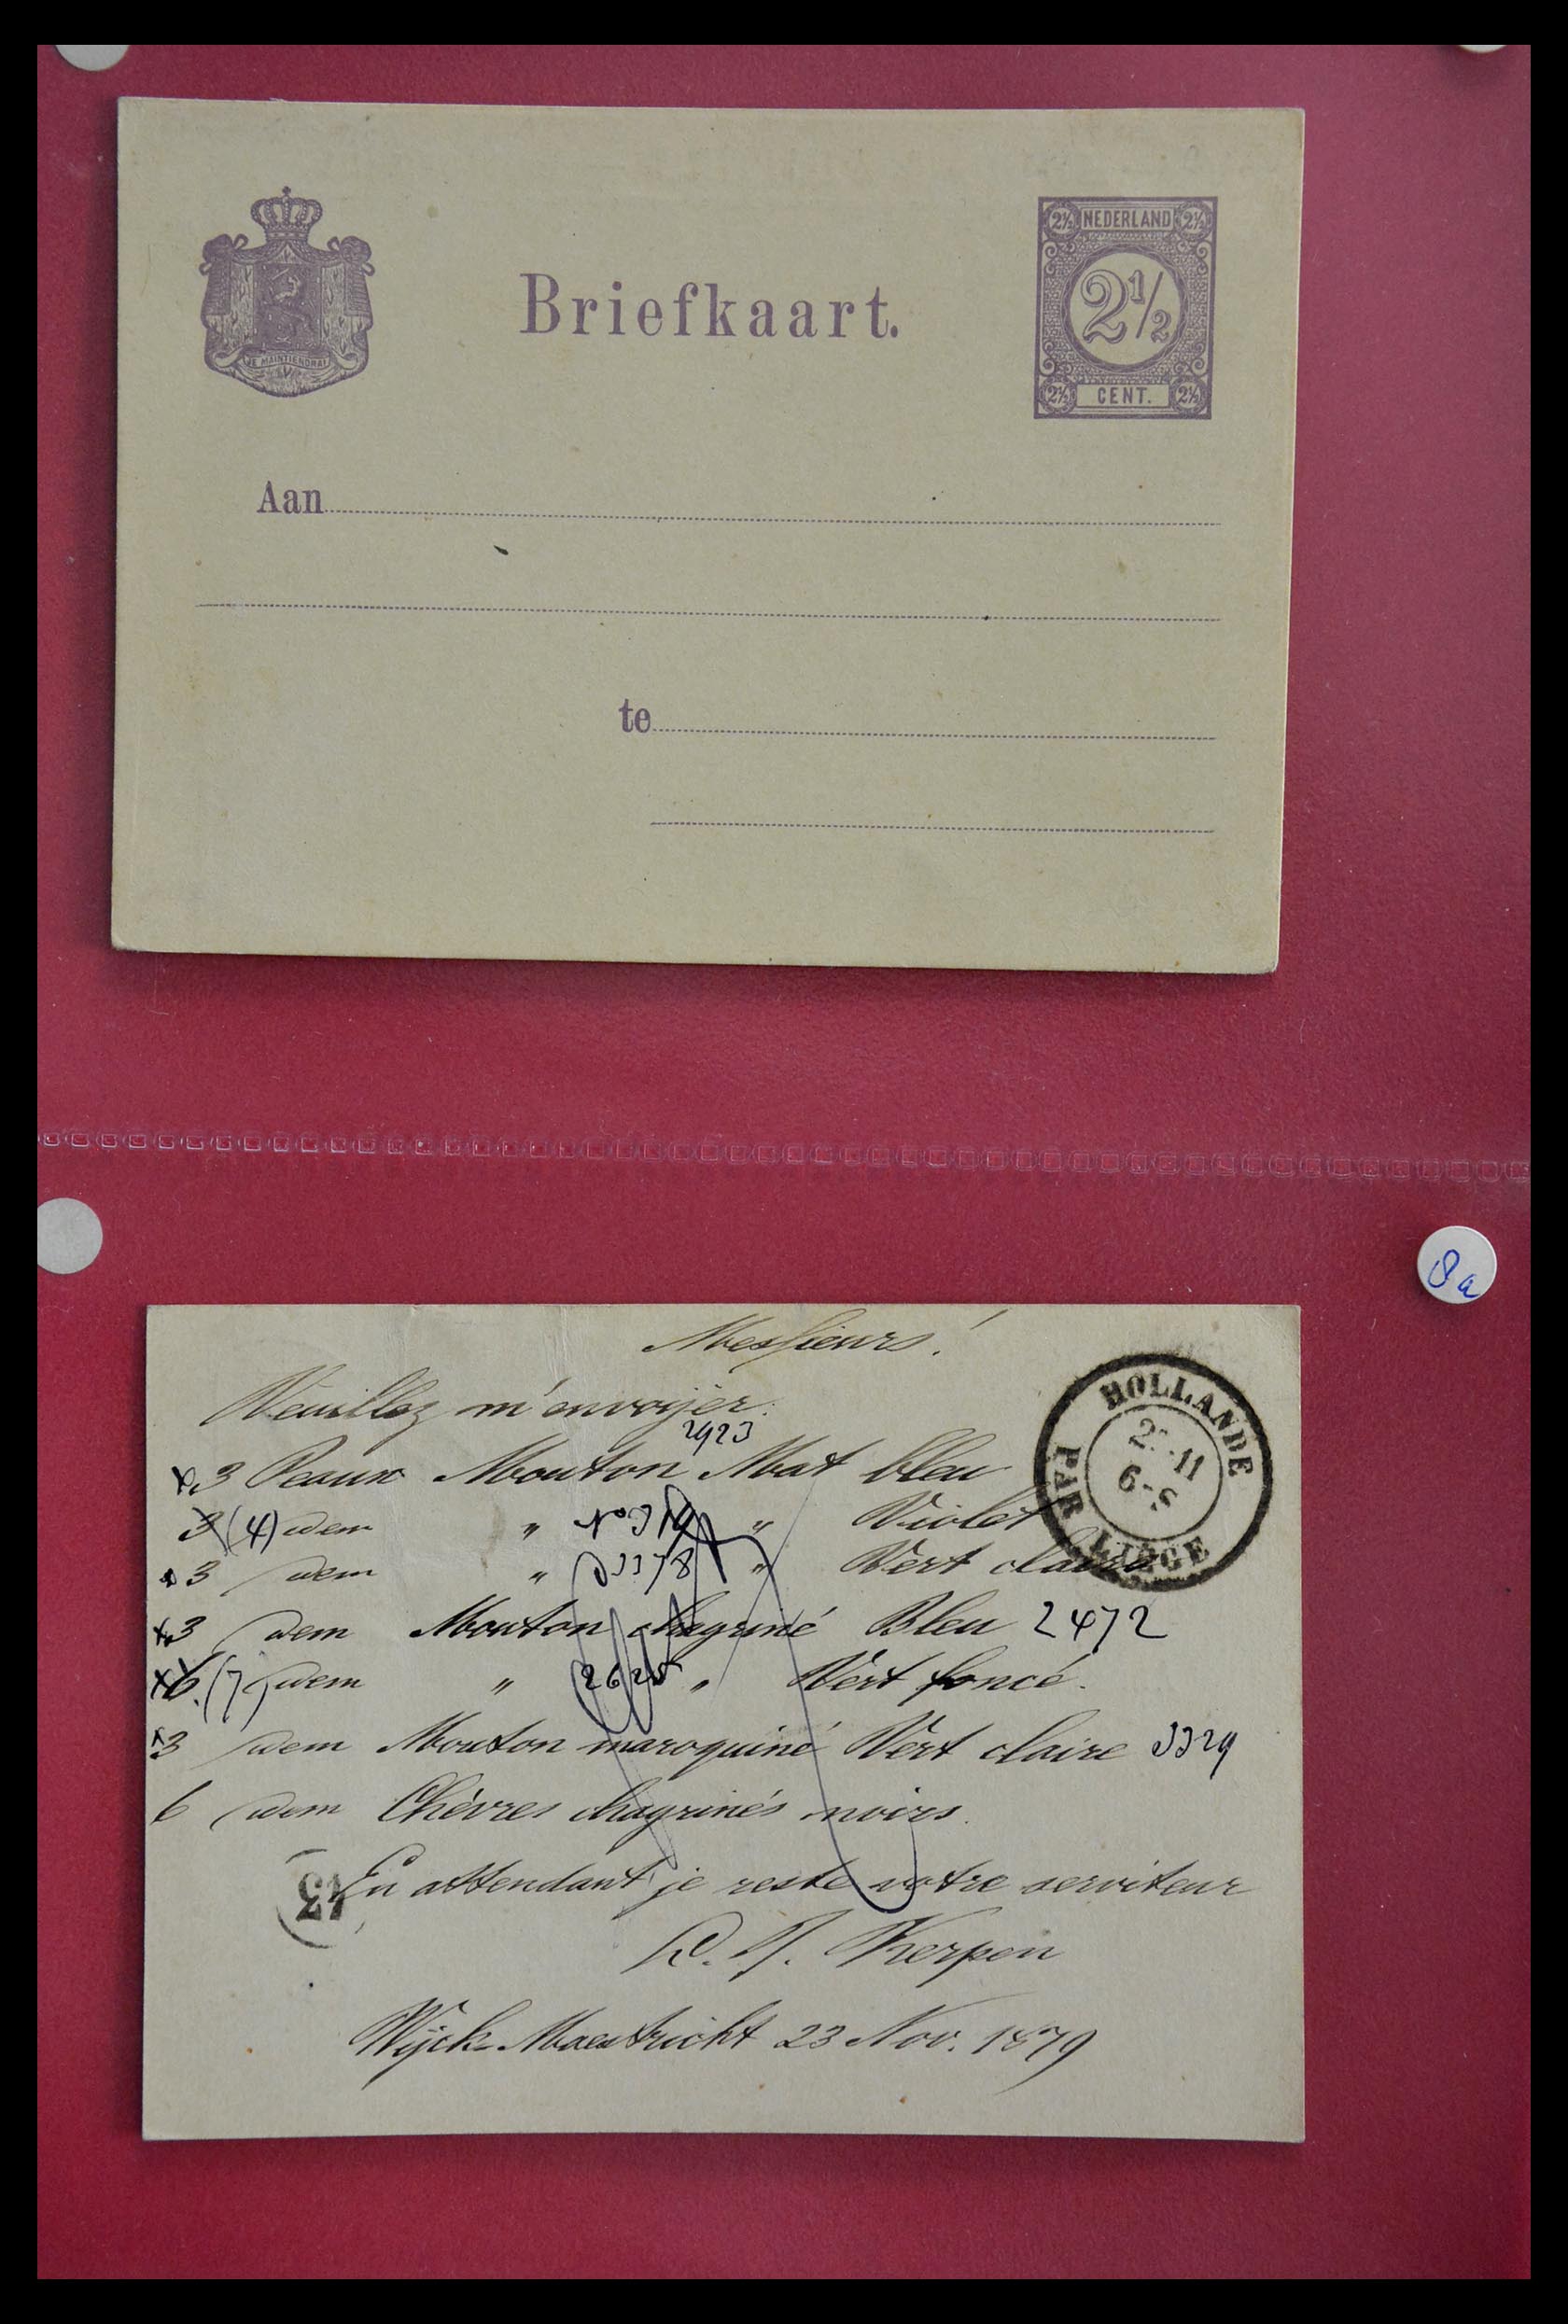 2½ NEDERLAND 2½
2½
2½ CENT. 2½
JE MAINTIENDRAI
Briefkaart.
Aan
te
8a
Messieurs!
Veuillez m'envoyer:
2923
3 Peaux Mouton Mat bleu
3 (4) idem " No " Violet
3 idem " 3378 " Vert claire
3 idem Mouton chagriné Bleu 2472
6 (7) idem " 2625 " Vert foncé.
3 idem Mouton maroquiné Vert claire 3329
6 idem Chèvres chagrinés noirs.
En attendant je reste votre serviteur
Kerpen
Wijck-Maestricht 23 Nov. 1879
HOLLANDE
PAR LIÉGE
11
6-